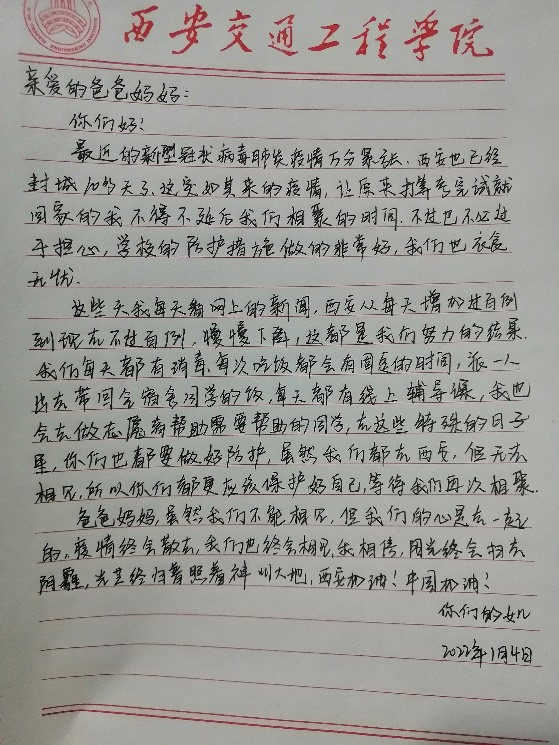 西安交通工程学院
亲爱的爸爸妈妈：
你们好！
最近的新型冠状病毒肺炎疫情万分嚣张．西安也已经
封城10多天了．这突如其来的疫情，让原来打算考完试就
回家的我不得不延后我们相聚的时间．不过也不必过
于担心，学校的防护措施做的非常好，我们也衣食
无忧．
这些天我每天看网上的新闻，西安从每天增加过百例
到现在不过百例，慢慢下降，这都是我们努力的结果．
我们每天都有消毒，每次吃饭都会有固定的时间，派一人
出去带回全宿舍同学的饭，每天都有线上辅导课，我也
会去做志愿者帮助需要帮助的同学，在这些特殊的日子
里，你们也都要做好防护，虽然我们都在西安，但无法
相见，所以你们都更应该保护好自己，等待我们再次相聚．
爸爸妈妈，虽然我们不能相见，但我们的心是在一起
的，疫情终会散去，我们也终会相见，我相信，阳光终会扫去
阴霾，光芒终归普照着神州大地，西安加油！中国加油！
你们的女儿
2022年1月4日